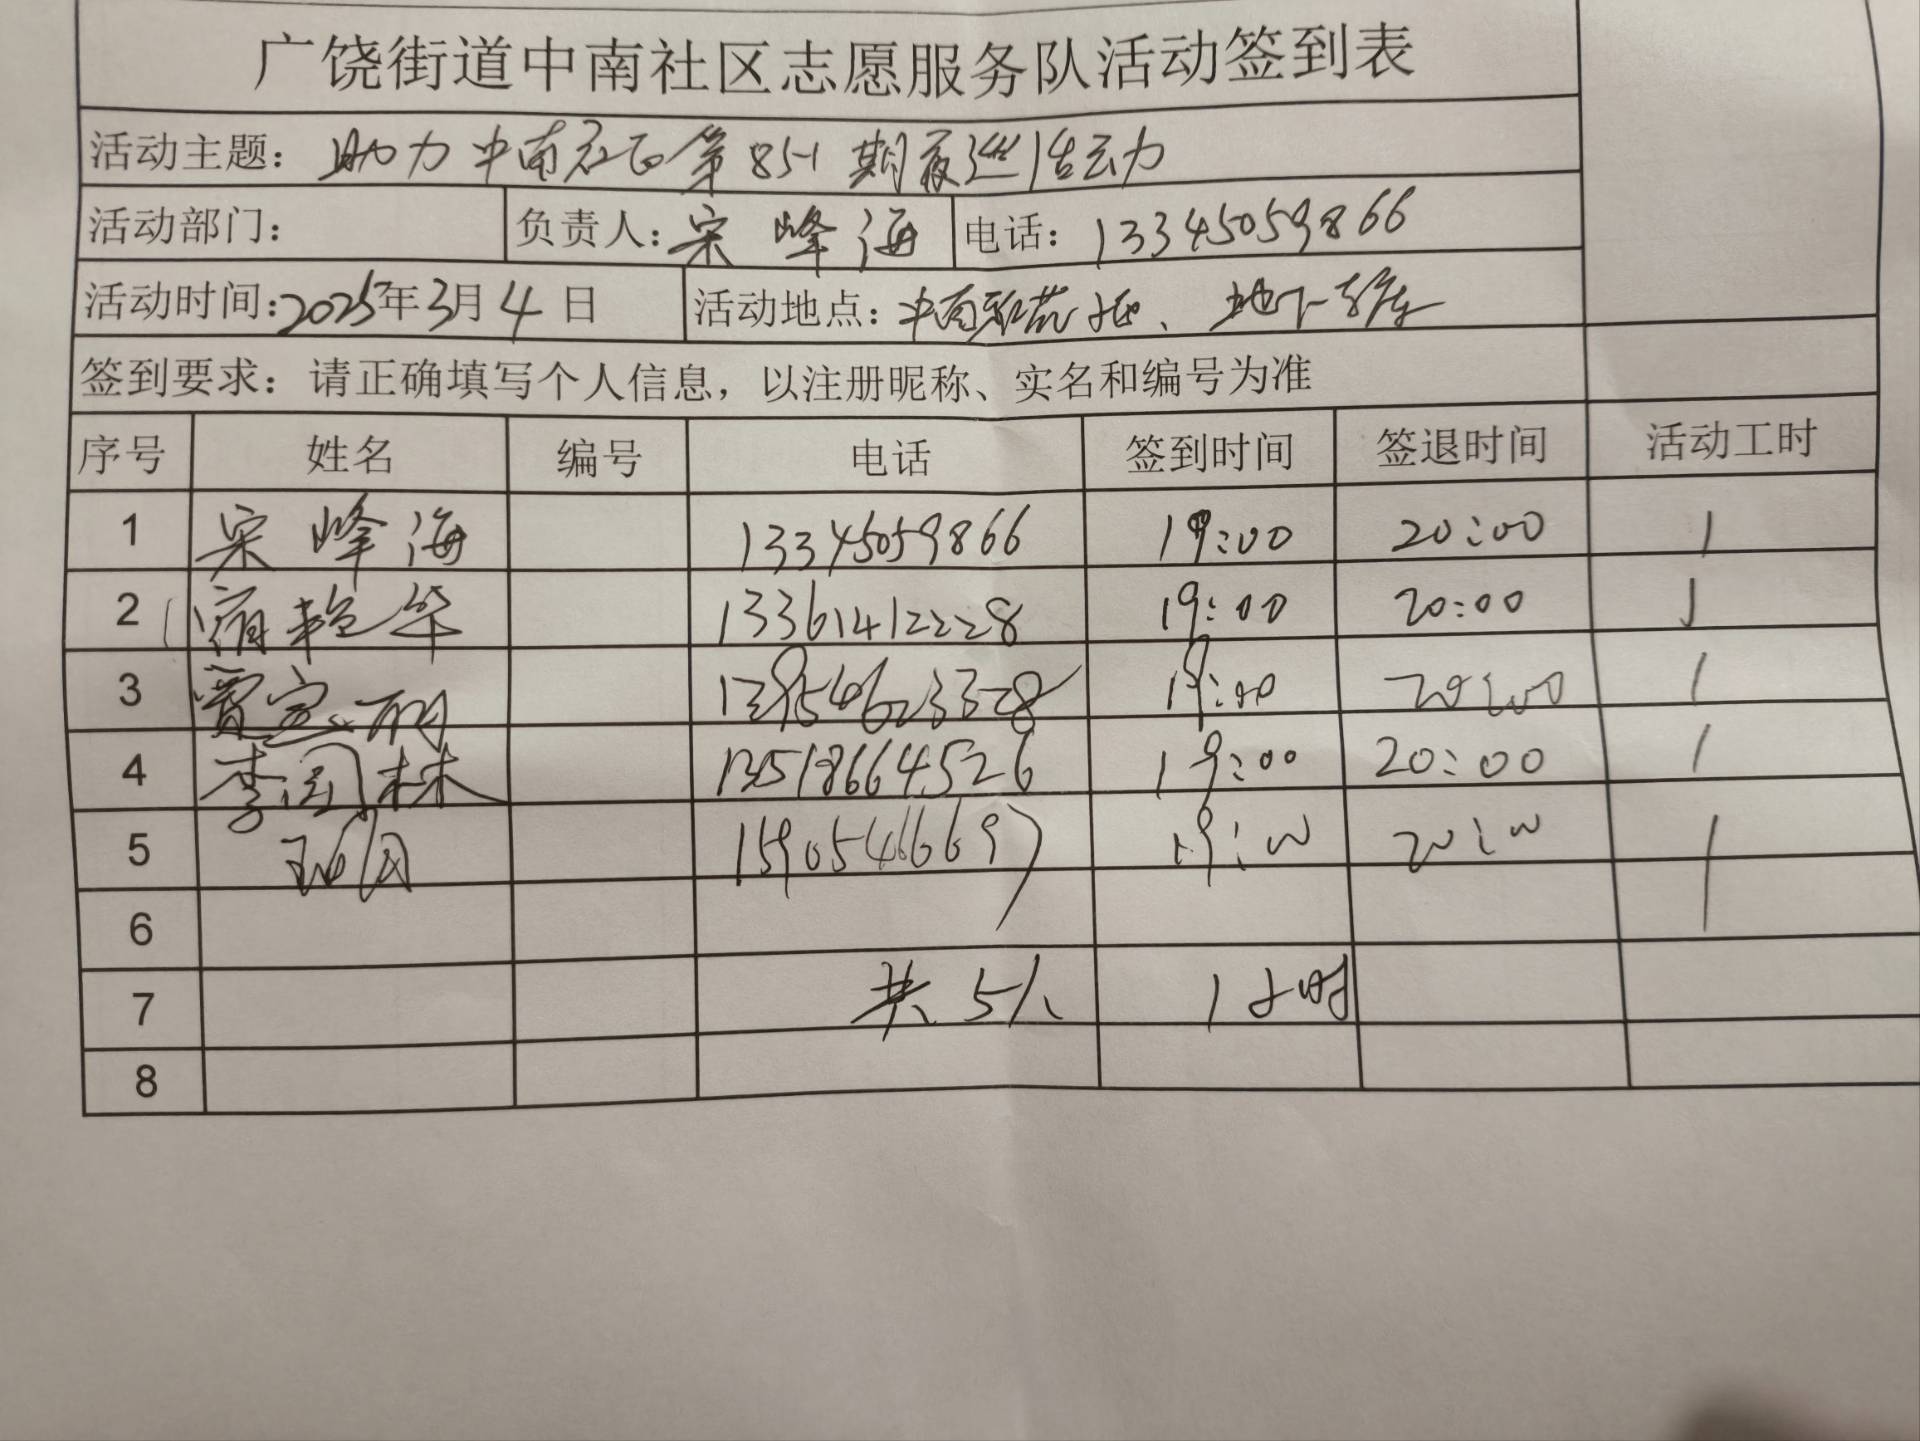 广饶街道中南社区志愿服务队活动签到表
活动主题：助力中南社区第851期夜巡活动
活动部门： 负责人：宋峰海 电话：13345059866
活动时间：2025年3月4日 活动地点：中南 、地下车库
签到要求：请正确填写个人信息，以注册昵称、实名和编号为准
序号 姓名 编号 电话 签到时间 签退时间 活动工时
1 宋峰海 13345059866 19:00 20:00 1
2 艳华 13361412228 19:00 20:00 1
3 贾 13954623328 19:00 20:00 1
4 李国林 13518664526 19:00 20:00 1
5 15905466697 19:00 20:00 1
6
7 共5人 1小时
8